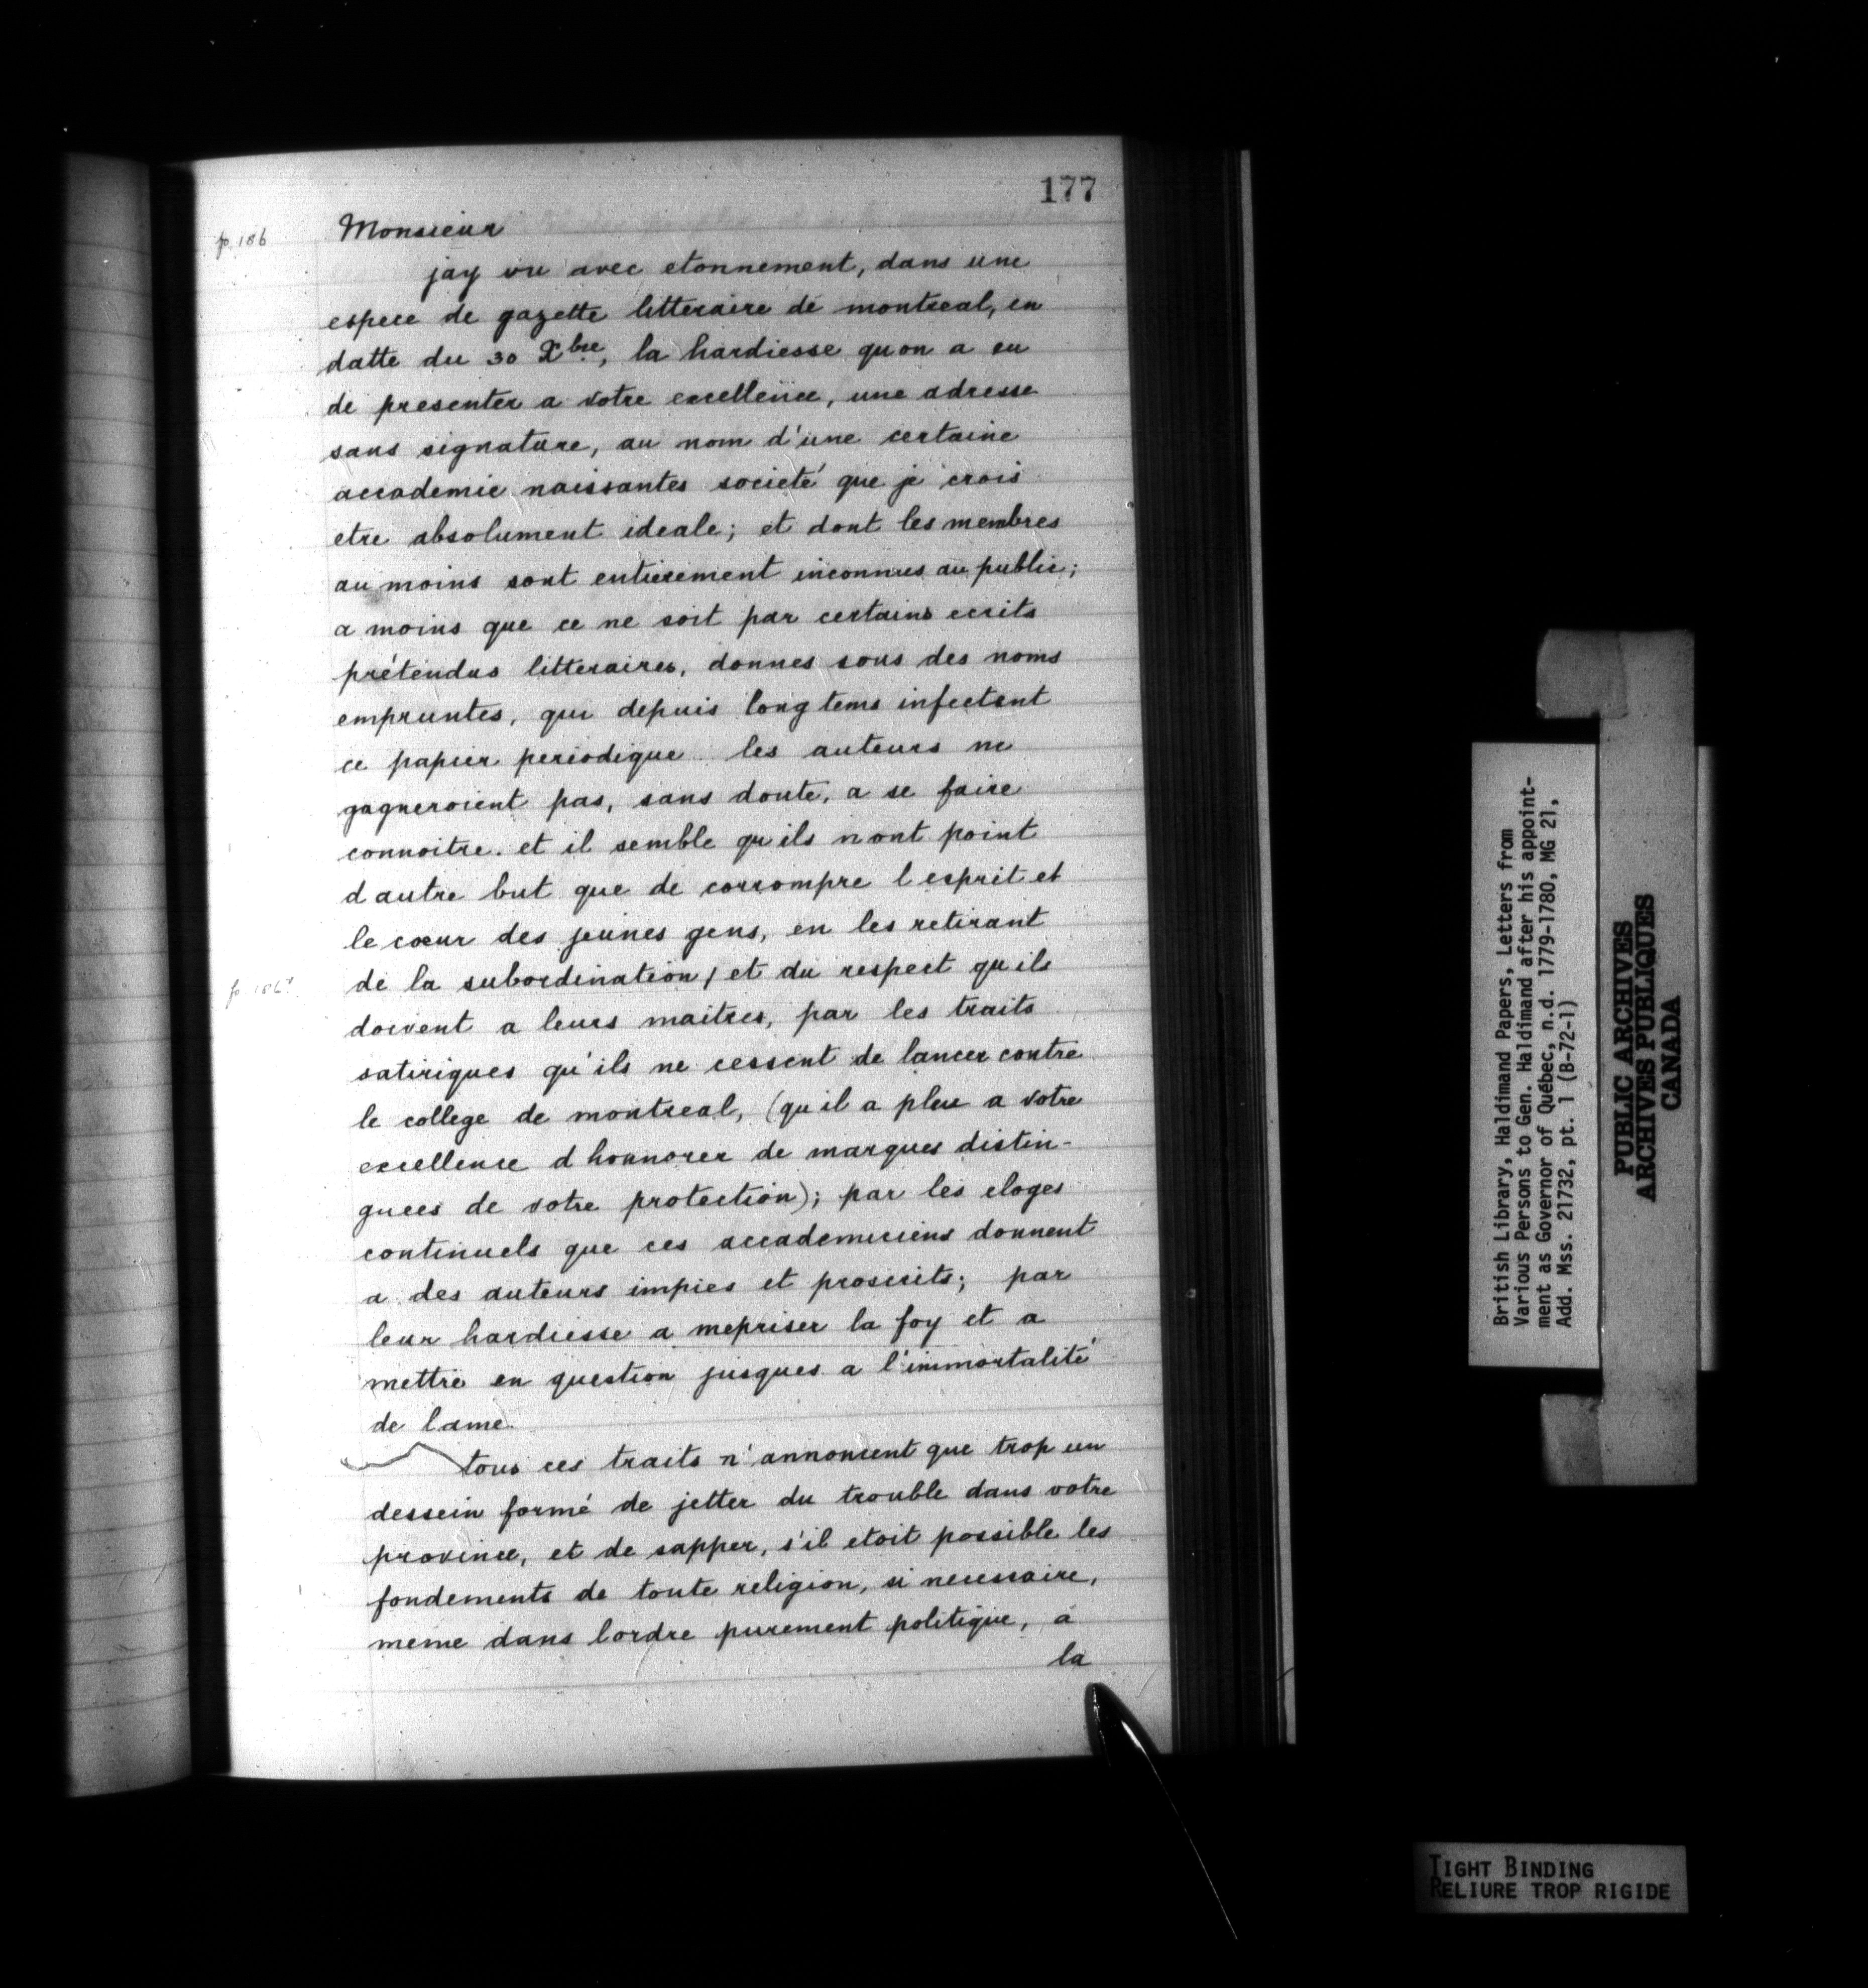 177
p. 186
Monsieur
jay vu avec etonnement, dans une
espece de gazette litteraire de montreal, en
datte du 30 Xbre, la hardiesse qu on a eu
de presenter a votre excellence, une adresse
sans signature, au nom d'une certaine
accademie naissantes societé que je crois
etre absolument ideale; et dont les membres
au moins sont entierement inconnus au public;
a moins que ce ne soit par certains ecrits
prétendus litteraires, donnes sous des noms
empruntes, qui depuis long tems infectent
ce papier periodique les auteurs ne
gagneroient pas, sans doute, a se faire
connoitre. et il semble qu ils n ont point
d autre but que de corrompre l esprit et
le cœur des jeunes gens, en les retirant
p. 186v
de la subordination / et du respect qu ils
doivent a leurs maitres, par les traits
satiriques qu'ils ne cessent de lancer contre
le college de montreal, (qu il a pleu a votre
excellence d honnorer de marques distin-
guees de votre protection); par les eloges
continuels que ces accademiciens donnent
a des auteurs impies et proscrits; par
leur hardiesse a mepriser la foy et a
mettre en question jusques a l'immortalité
de lame.
tous ces traits n'annoncent que trop un
dessein formé de jetter du trouble dans votre
province, et de sapper, s'il etoit possible les
fondements de toute religion, si necessaire,
meme dans lordre purement politique, a
la
British Library, Haldimand Papers, Letters from
Various Persons to Gen. Haldimand after his appoint-
ment as Governor of Québec, n.d. 1779-1780, MG 21,
Add. Mss. 21732, pt. 1 (B-72-1)
PUBLIC ARCHIVES
ARCHIVES PUBLIQUES
CANADA
TIGHT BINDING
RELIURE TROP RIGIDE